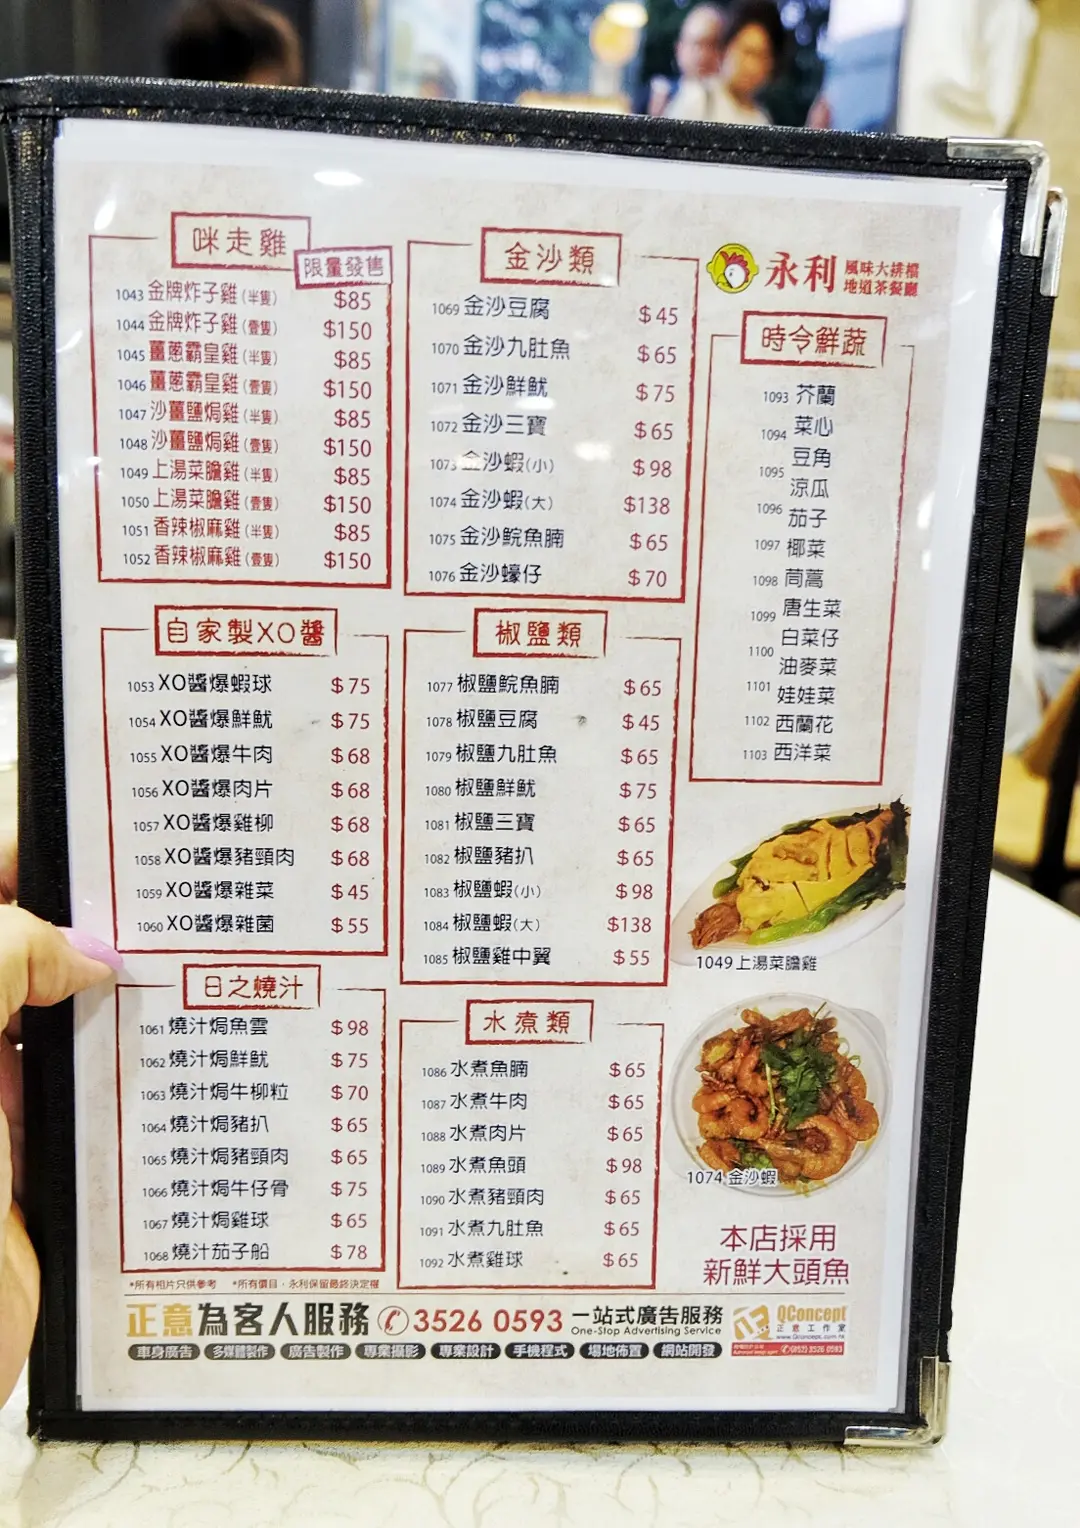 咪走雞
限量發售
1043 金牌炸子雞(半隻) $85
1044 金牌炸子雞(壹隻) $150
1045 薑蔥霸皇雞(半隻) $85
1046 薑蔥霸皇雞(壹隻) $150
1047 沙薑鹽焗雞(半隻) $85
1048 沙薑鹽焗雞(壹隻) $150
1049 上湯菜膽雞(半隻) $85
1050 上湯菜膽雞(壹隻) $150
1051 香辣椒麻雞(半隻) $85
1052 香辣椒麻雞(壹隻) $150
自家製XO醬
1053 XO醬爆蝦球 $75
1054 XO醬爆鮮魷 $75
1055 XO醬爆牛肉 $68
1056 XO醬爆肉片 $68
1057 XO醬爆雞柳 $68
1058 XO醬爆豬頸肉 $68
1059 XO醬爆雜菜 $45
1060 XO醬爆雜菌 $55
日之燒汁
1061 燒汁焗魚雲 $98
1062 燒汁焗鮮魷 $75
1063 燒汁焗牛柳粒 $70
1064 燒汁焗豬扒 $65
1065 燒汁焗豬頸肉 $65
1066 燒汁焗牛仔骨 $75
1067 燒汁焗雞球 $65
1068 燒汁茄子船 $78
金沙類
1069 金沙豆腐 $45
1070 金沙九肚魚 $65
1071 金沙鮮魷 $75
1072 金沙三寶 $65
1073 金沙蝦(小) $98
1074 金沙蝦(大) $138
1075 金沙鯇魚腩 $65
1076 金沙蠔仔 $70
椒鹽類
1077 椒鹽鯇魚腩 $65
1078 椒鹽豆腐 $45
1079 椒鹽九肚魚 $65
1080 椒鹽鮮魷 $75
1081 椒鹽三寶 $65
1082 椒鹽豬扒 $65
1083 椒鹽蝦(小) $98
1084 椒鹽蝦(大) $138
1085 椒鹽雞中翼 $55
水煮類
1086 水煮魚腩 $65
1087 水煮牛肉 $65
1088 水煮肉片 $65
1089 水煮魚頭 $98
1090 水煮豬頸肉 $65
1091 水煮九肚魚 $65
1092 水煮雞球 $65
永利 風味大排檔
地道茶餐廳
時令鮮蔬
1093 芥蘭
1094 菜心
1095 豆角
涼瓜
1096 茄子
1097 椰菜
1098 茼蒿
1099 唐生菜
1100 白菜仔
油麥菜
1101 娃娃菜
1102 西蘭花
1103 西洋菜
1049 上湯菜膽雞
1074 金沙蝦
本店採用
新鮮大頭魚
*所有相片只供參考 *所有價目，永利保留最終決定權
正意為客人服務 3526 0593 一站式廣告服務
One-Stop Advertising Service
QConcept
正意工作室
www.Qconcept.com.hk
(852) 3526 0593
車身廣告 多媒體製作 廣告製作 專業攝影 專業設計 手機程式 場地佈置 網站開發